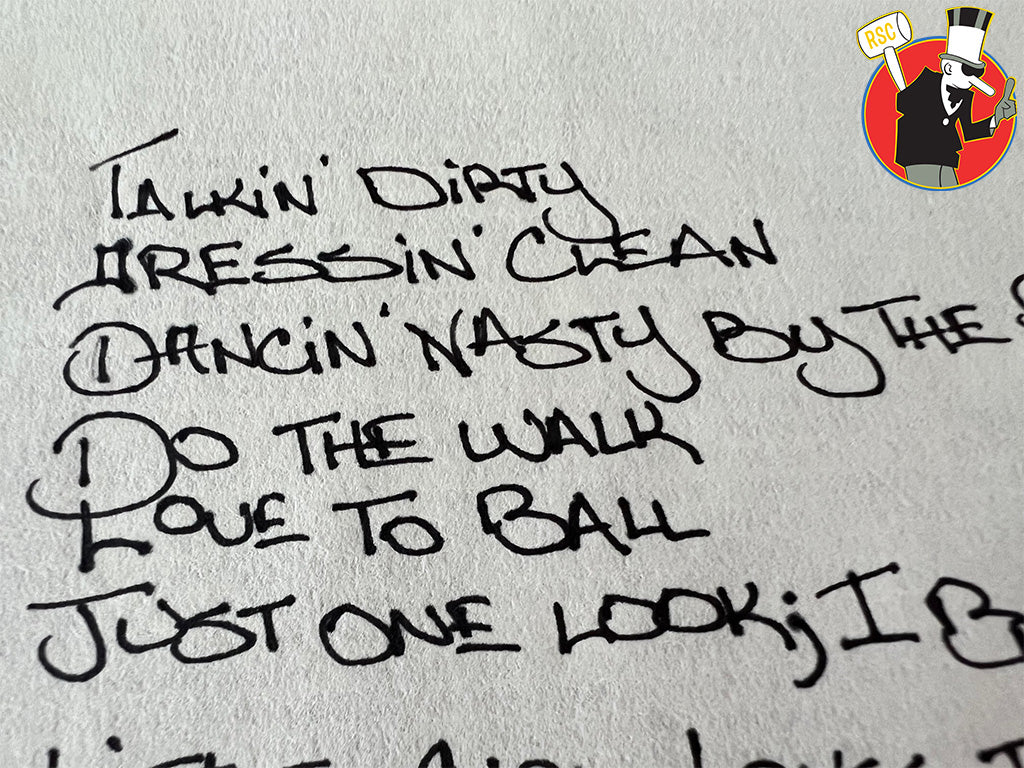 RSC
Talkin' Dirty
Dressin' Clean
Dancin' Nasty By The
Do The Walk
Love To Ball
Just One Look; I